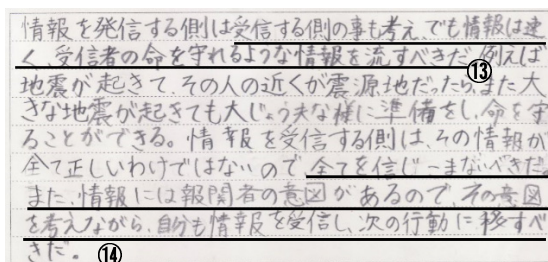 情報を発信する側は受信する側の事も考え、でも情報は速
く、受信者の命を守れるような情報を流すべきだ。例えば
⑬
地震が起きて、その人の近くが震源地だったら、また大
きな地震が起きても大じょう夫な様に準備をし、命を守
ることができる。情報を受信する側は、その情報が
全て正しいわけではないので、全てを信じーまないべきだ。
また、情報には報関者の意図があるので、その意図
を考えながら、自分も情報を受信し、次の行動に移すべ
きだ。 ⑭